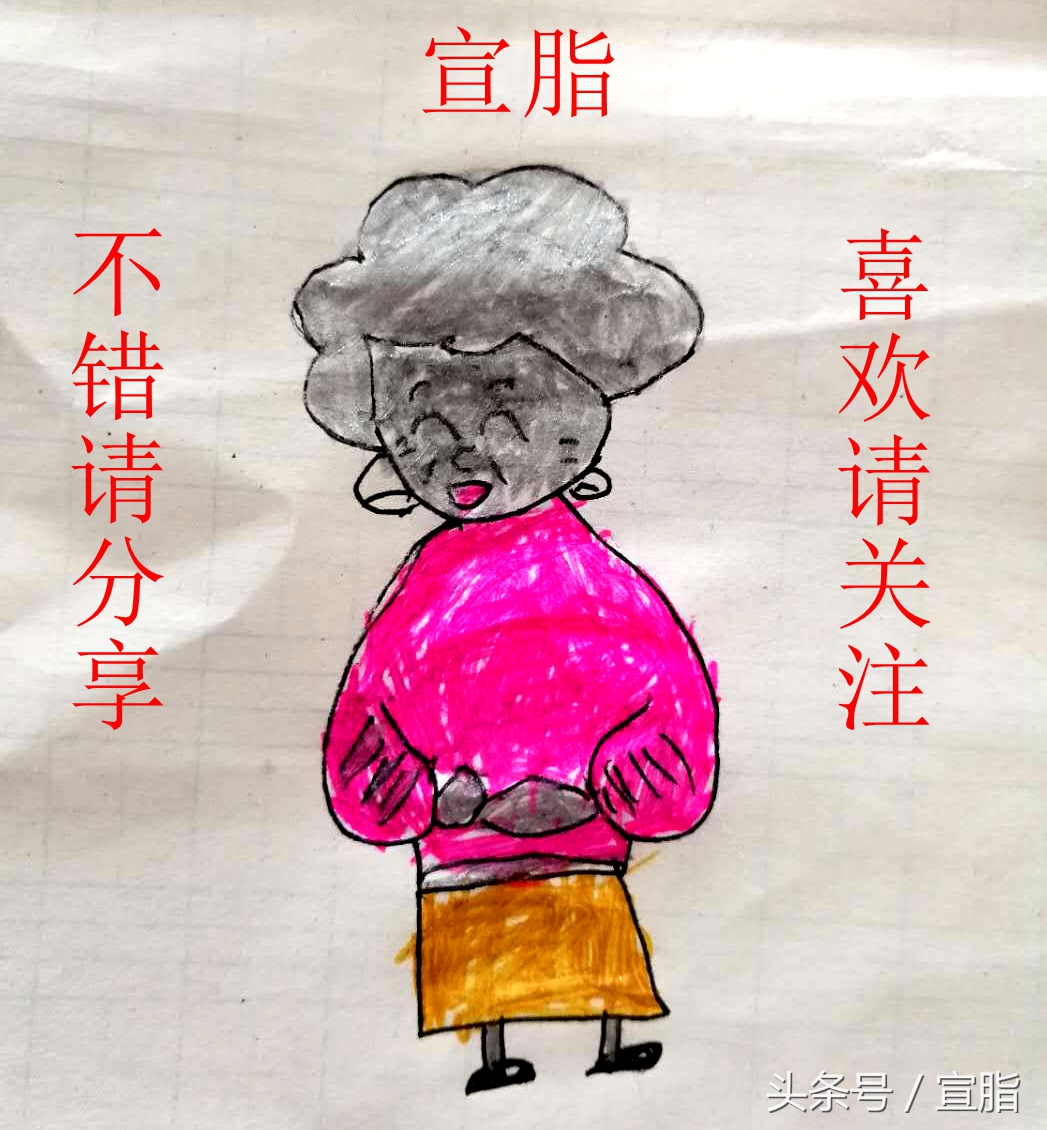 宣脂
不错请分享
喜欢请关注
头条号 / 宣脂